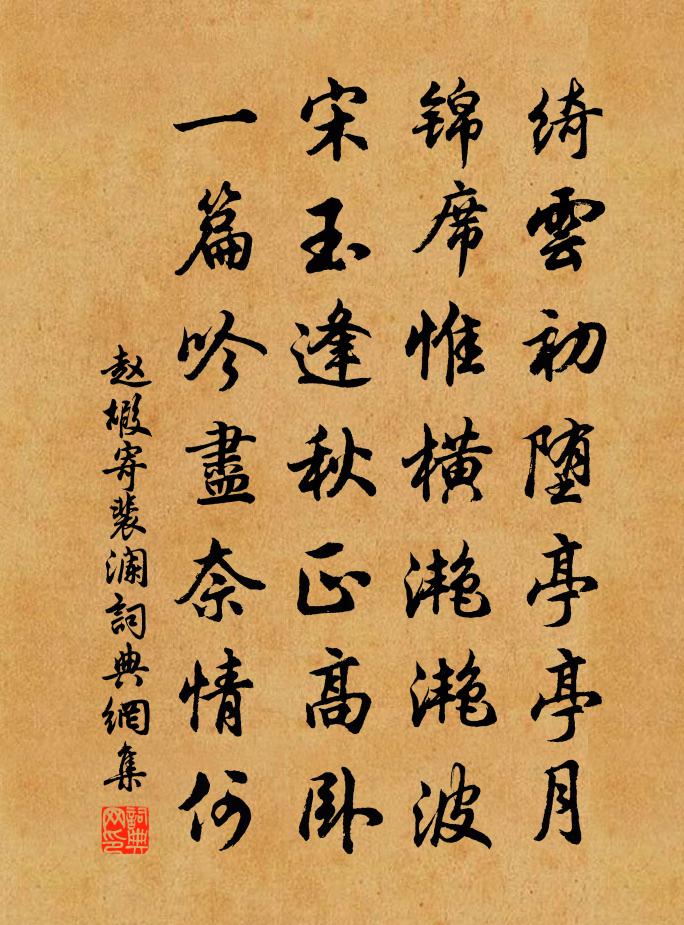 綺雲初堕亭亭月
锦席惟橫滟滟波
宋玉逢秋正高卧
一篇吟盡奈情何
赵嘏寄裴澜詞典網集
詞典网印